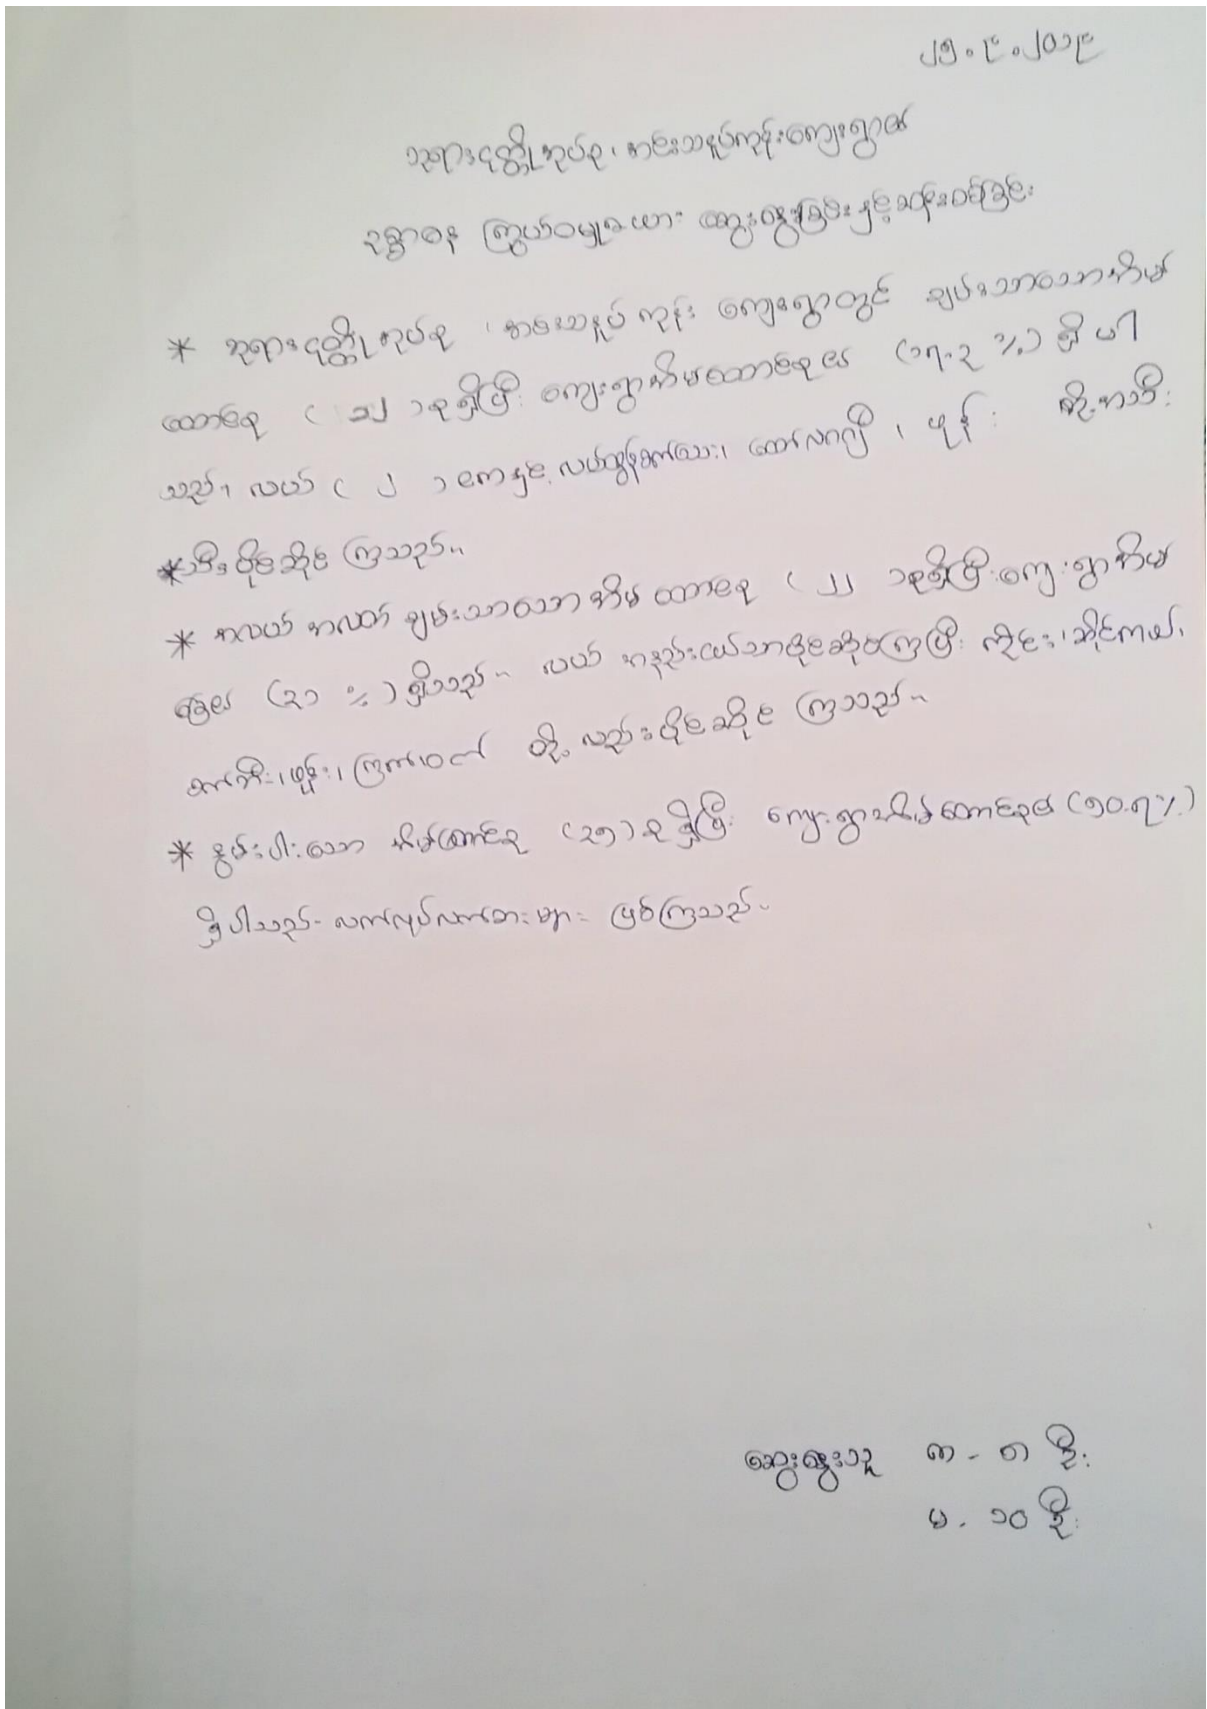 ၂၅.၉.၂၀၁၉
ဘုရားငုတ္တိုအုပ်စု၊ အမ်းသနပ်ကုန်းကျေးရွာ၏
ဥစ္စာဓန ကြွယ်ဝမှုအား ဆွေးနွေးခြင်းနှင့်ဆန်းစစ်ခြင်း
* ဘုရားငုတ္တိုအုပ်စု ၊ အမ်းသနပ်ကုန်း ကျေးရွာတွင် ချမ်းသာသောအိမ်
ထောင်စု ( ၁၂ )စုရှိပြီး ကျေးရွာအိမ်ထောင်စု၏ (၁၇.၃ %) ရှိ ပါ
သည်၊ လယ် ( ၂ ) ဧကနှင့် လယ်ထွန်စက်လေး၊ ထော်လာဂျီ ၊ ဖုန်း တို့အသီး
သီးပိုင်ဆိုင် ကြသည်။
* အလယ် အလတ် ချမ်းသာသောအိမ် ထောင်စု ( ၂၂ )စုရှိပြီး ကျေးရွာအိမ်
ခြေ၏ (၃၁ %) ရှိသည်။ လယ် အနည်းငယ်သာပိုင်ဆိုင်ကြပြီး ကိုင်း၊ ဆိုင်ကယ်၊
စက်ဘီး၊ ဖုန်း၊ ကြက်ဝက် တို့ လည်းပိုင်ဆိုင် ကြသည်။
* နွမ်းပါးသော အိမ်ထောင်စု (၃၅) စု ရှိပြီး ကျေးရွာအိမ်ထောင်စု၏ (၅၀.၇%)
ရှိပါသည်- လက်လုပ်လက်စား များ ဖြစ်ကြသည်။
ဆွေးနွေးသူ ကျ - ၈ ဦး
မ - ၁၀ ဦး